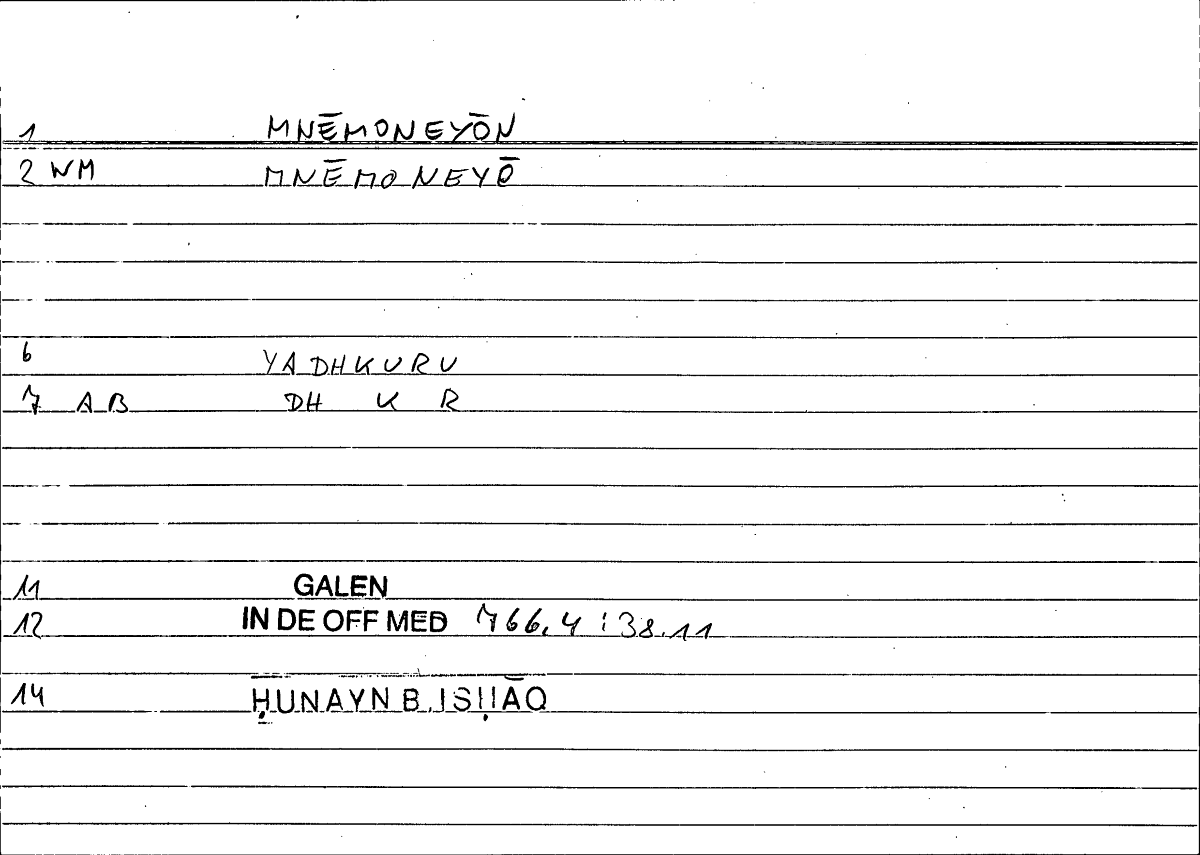 1 MNĒMONEYŌN
2 WM MNĒMONEYŌ
6 YADHKURU
7 AB DH K R
11 GALEN
12 IN DE OFF MED 766,4 : 38.11
14 ḤUNAYN B. ISḤĀQ